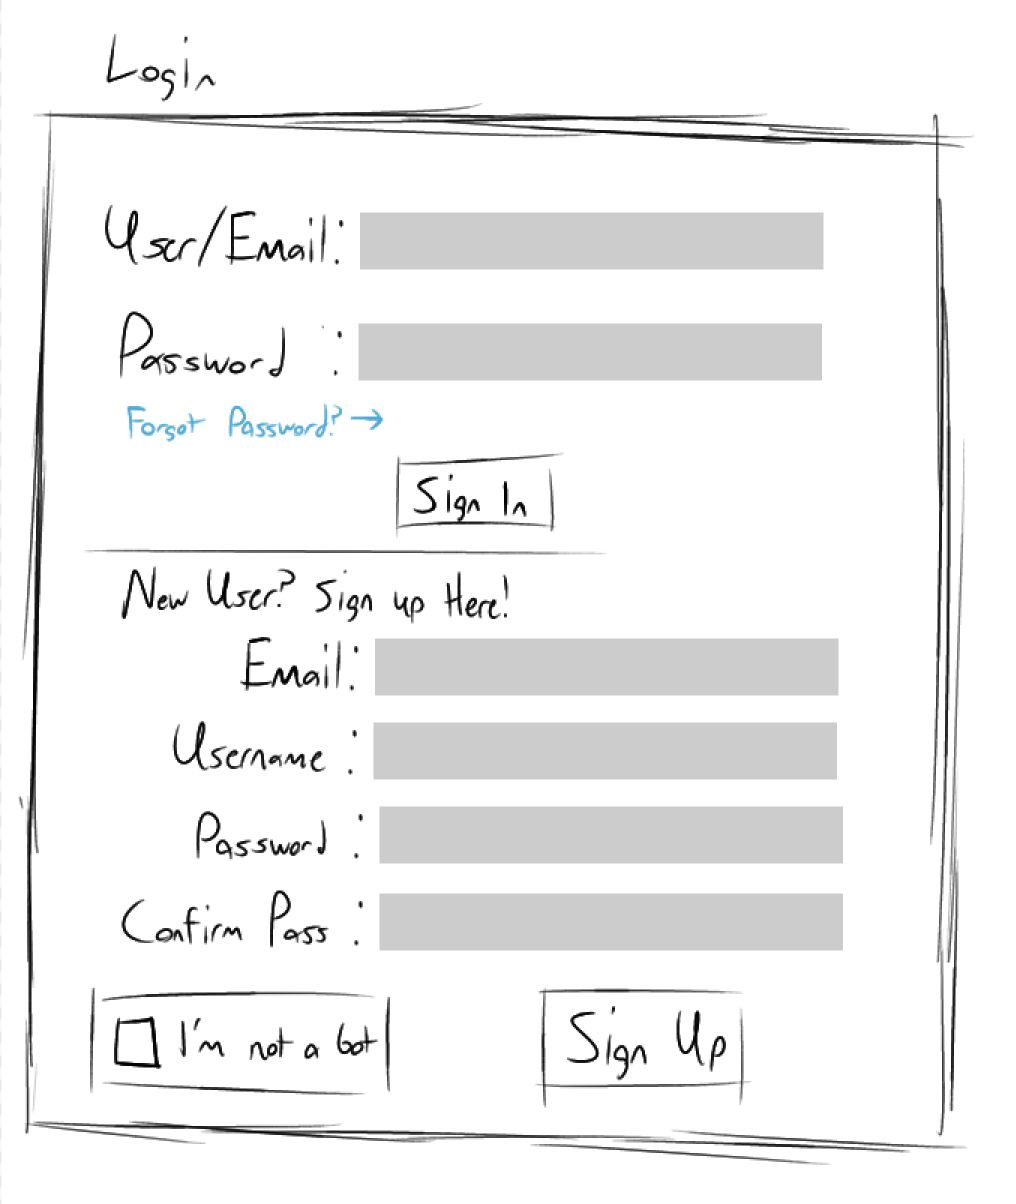 Login
User/Email:
Password :
Forgot Password? →
Sign In
New User? Sign up Here!
Email:
Username :
Password :
Confirm Pass :
I'm not a bot
Sign Up